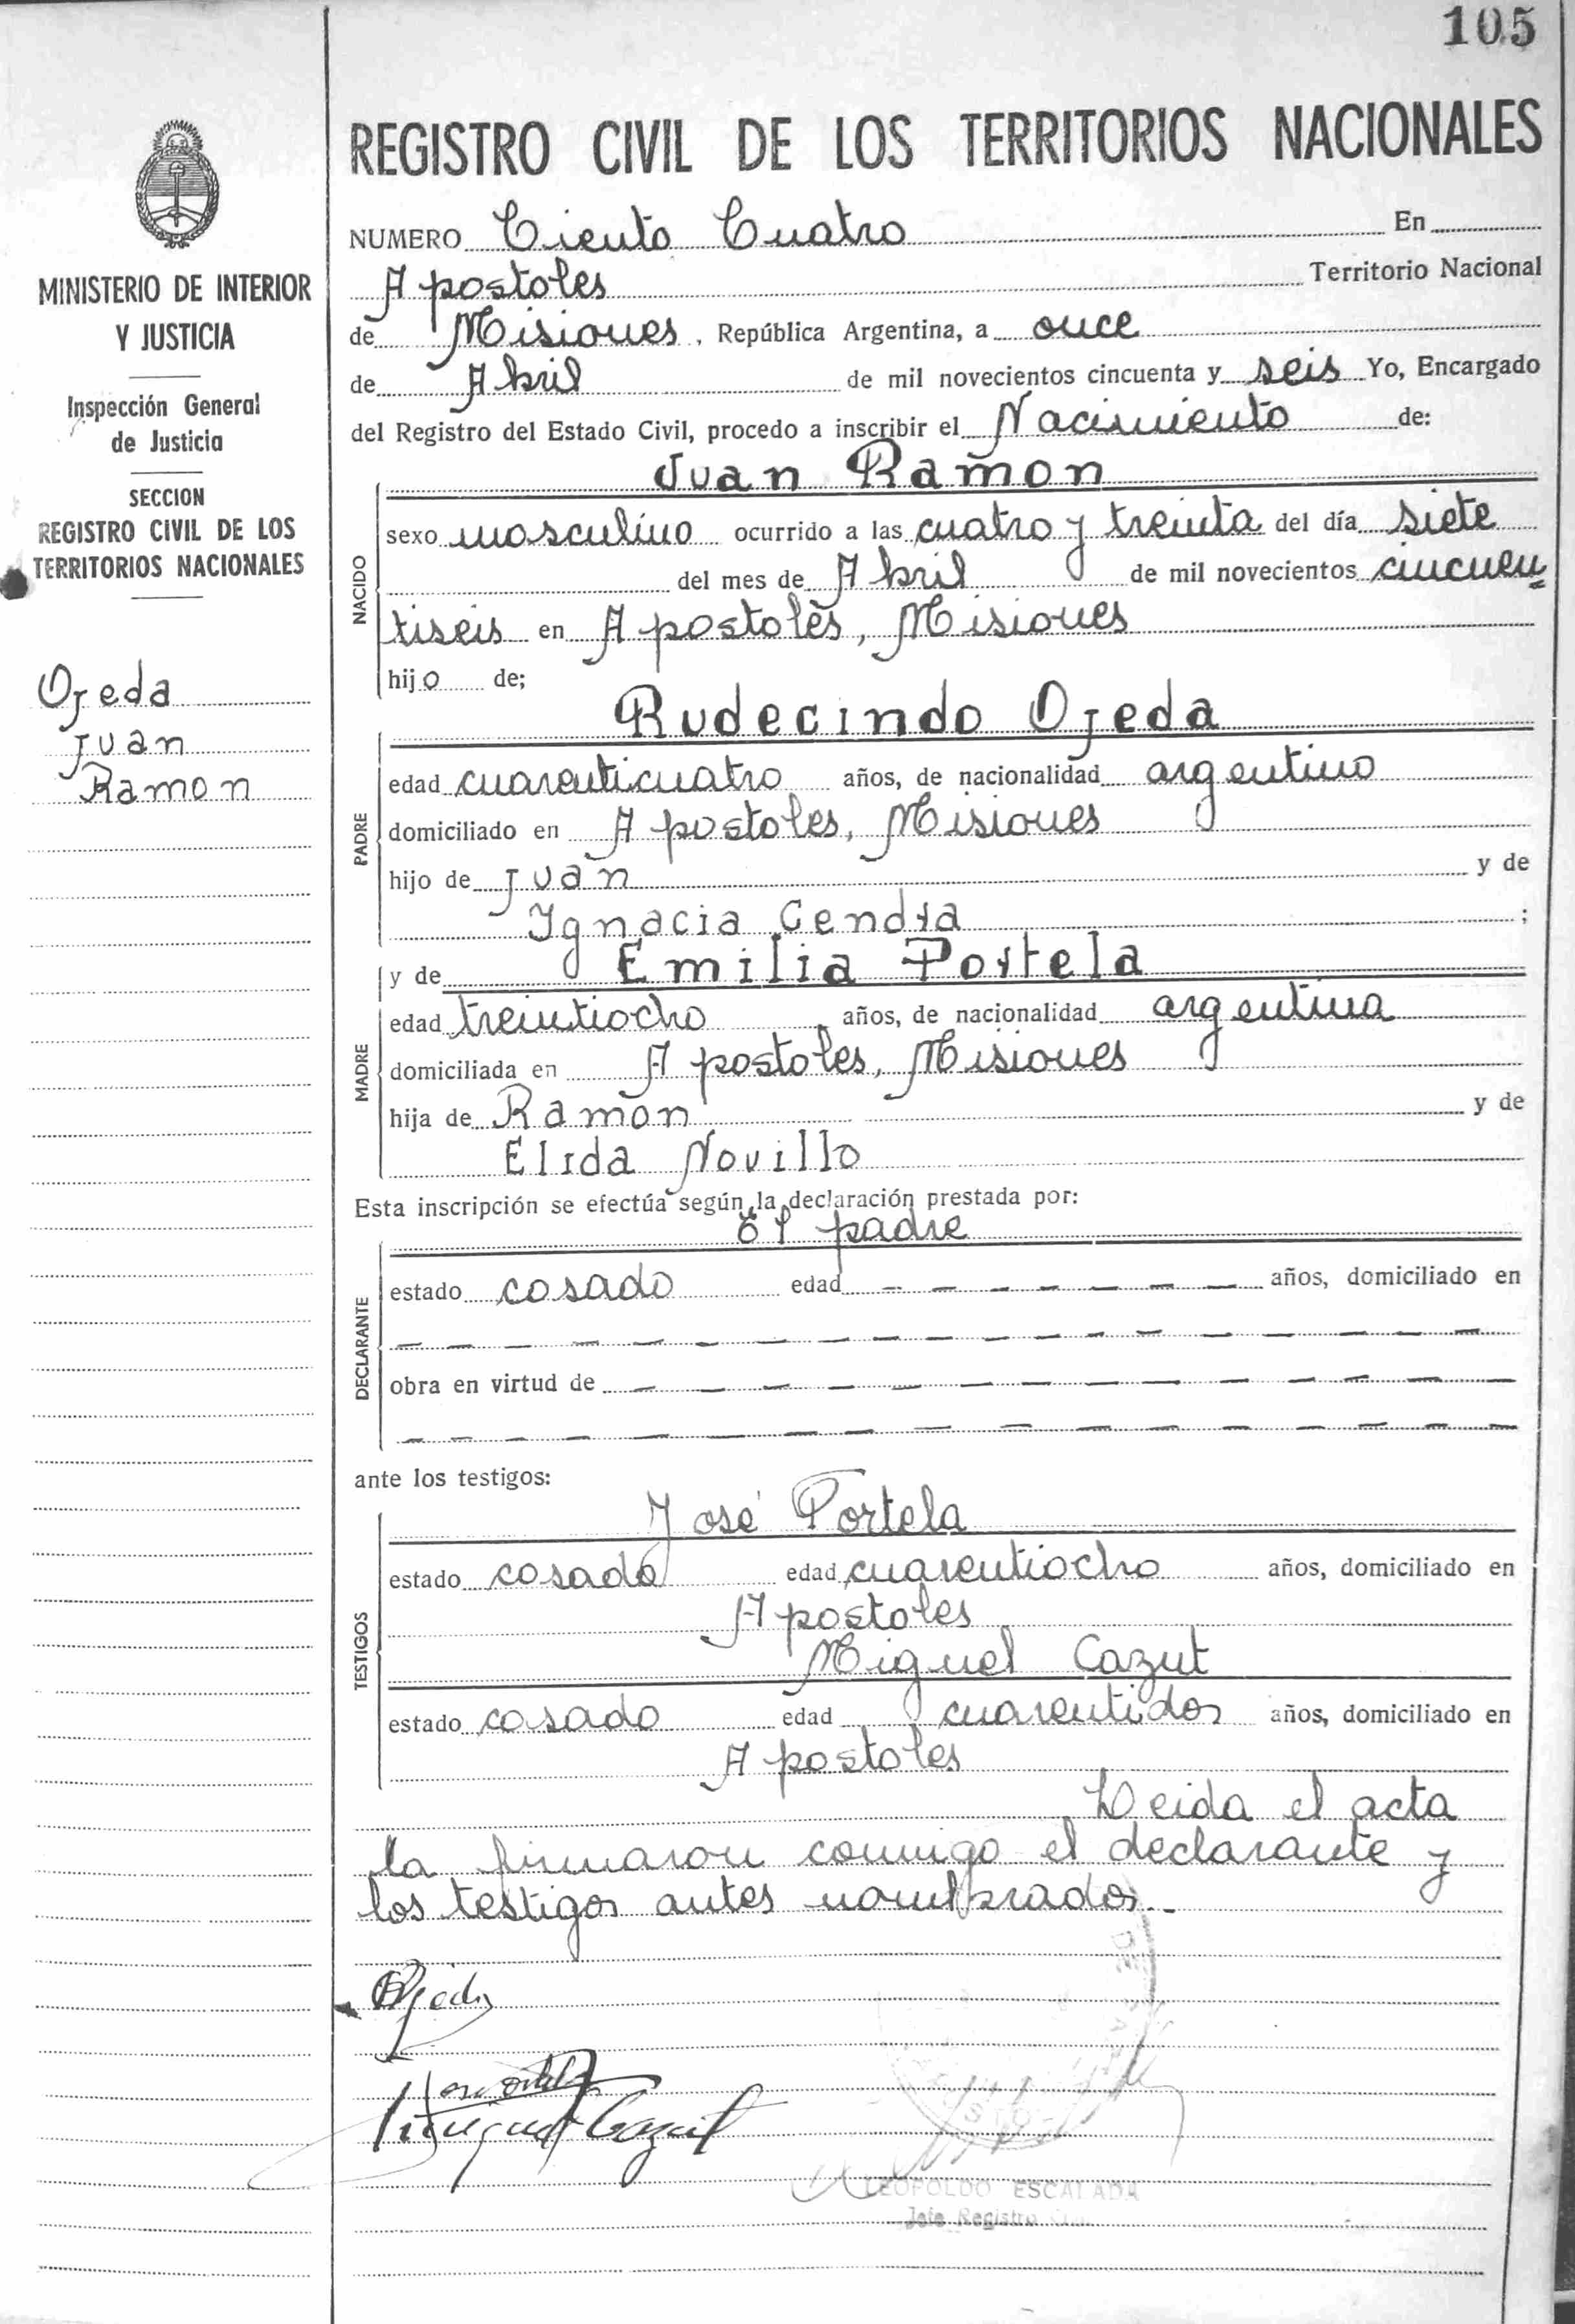 105
REGISTRO CIVIL DE LOS TERRITORIOS NACIONALES
MINISTERIO DE INTERIOR
Y JUSTICIA
Inspección General
de Justicia
SECCION
REGISTRO CIVIL DE LOS
TERRITORIOS NACIONALES
Ojeda
Juan
Ramon
NUMERO Ciento Cuatro En
Apostoles Territorio Nacional
de Misiones, República Argentina, a once
de Abril de mil novecientos cincuenta y seis Yo, Encargado
del Registro del Estado Civil, procedo a inscribir el Nacimiento de:
Juan Ramon
NACIDO
sexo masculino ocurrido a las cuatro y treinta del día siete
del mes de Abril de mil novecientos cincuen
tiseis en Apostoles, Misiones
hijo de;
Rudecindo Ojeda
PADRE
edad cuarenticuatro años, de nacionalidad argentino
domiciliado en Apostoles, Misiones
hijo de Juan y de
Ignacia Cendra;
y de Emilia Portela
MADRE
edad treintiocho años, de nacionalidad argentina
domiciliada en Apostoles, Misiones
hija de Ramon y de
Elida Novillo
Esta inscripción se efectúa según la declaración prestada por:
el padre
DECLARANTE
estado casado edad - - - - - - - años, domiciliado en
obra en virtud de
ante los testigos:
José Portela
TESTIGOS
estado casado edad cuarentiocho años, domiciliado en
Apostoles
Miguel Cazut
estado casado edad cuarentidos años, domiciliado en
Apostoles
Leida el acta
la firmaron conmigo el declarante y
los testigos antes nombrados.-
Miguel Cazut
LEOPOLDO ESCALADA
Jefe Registro